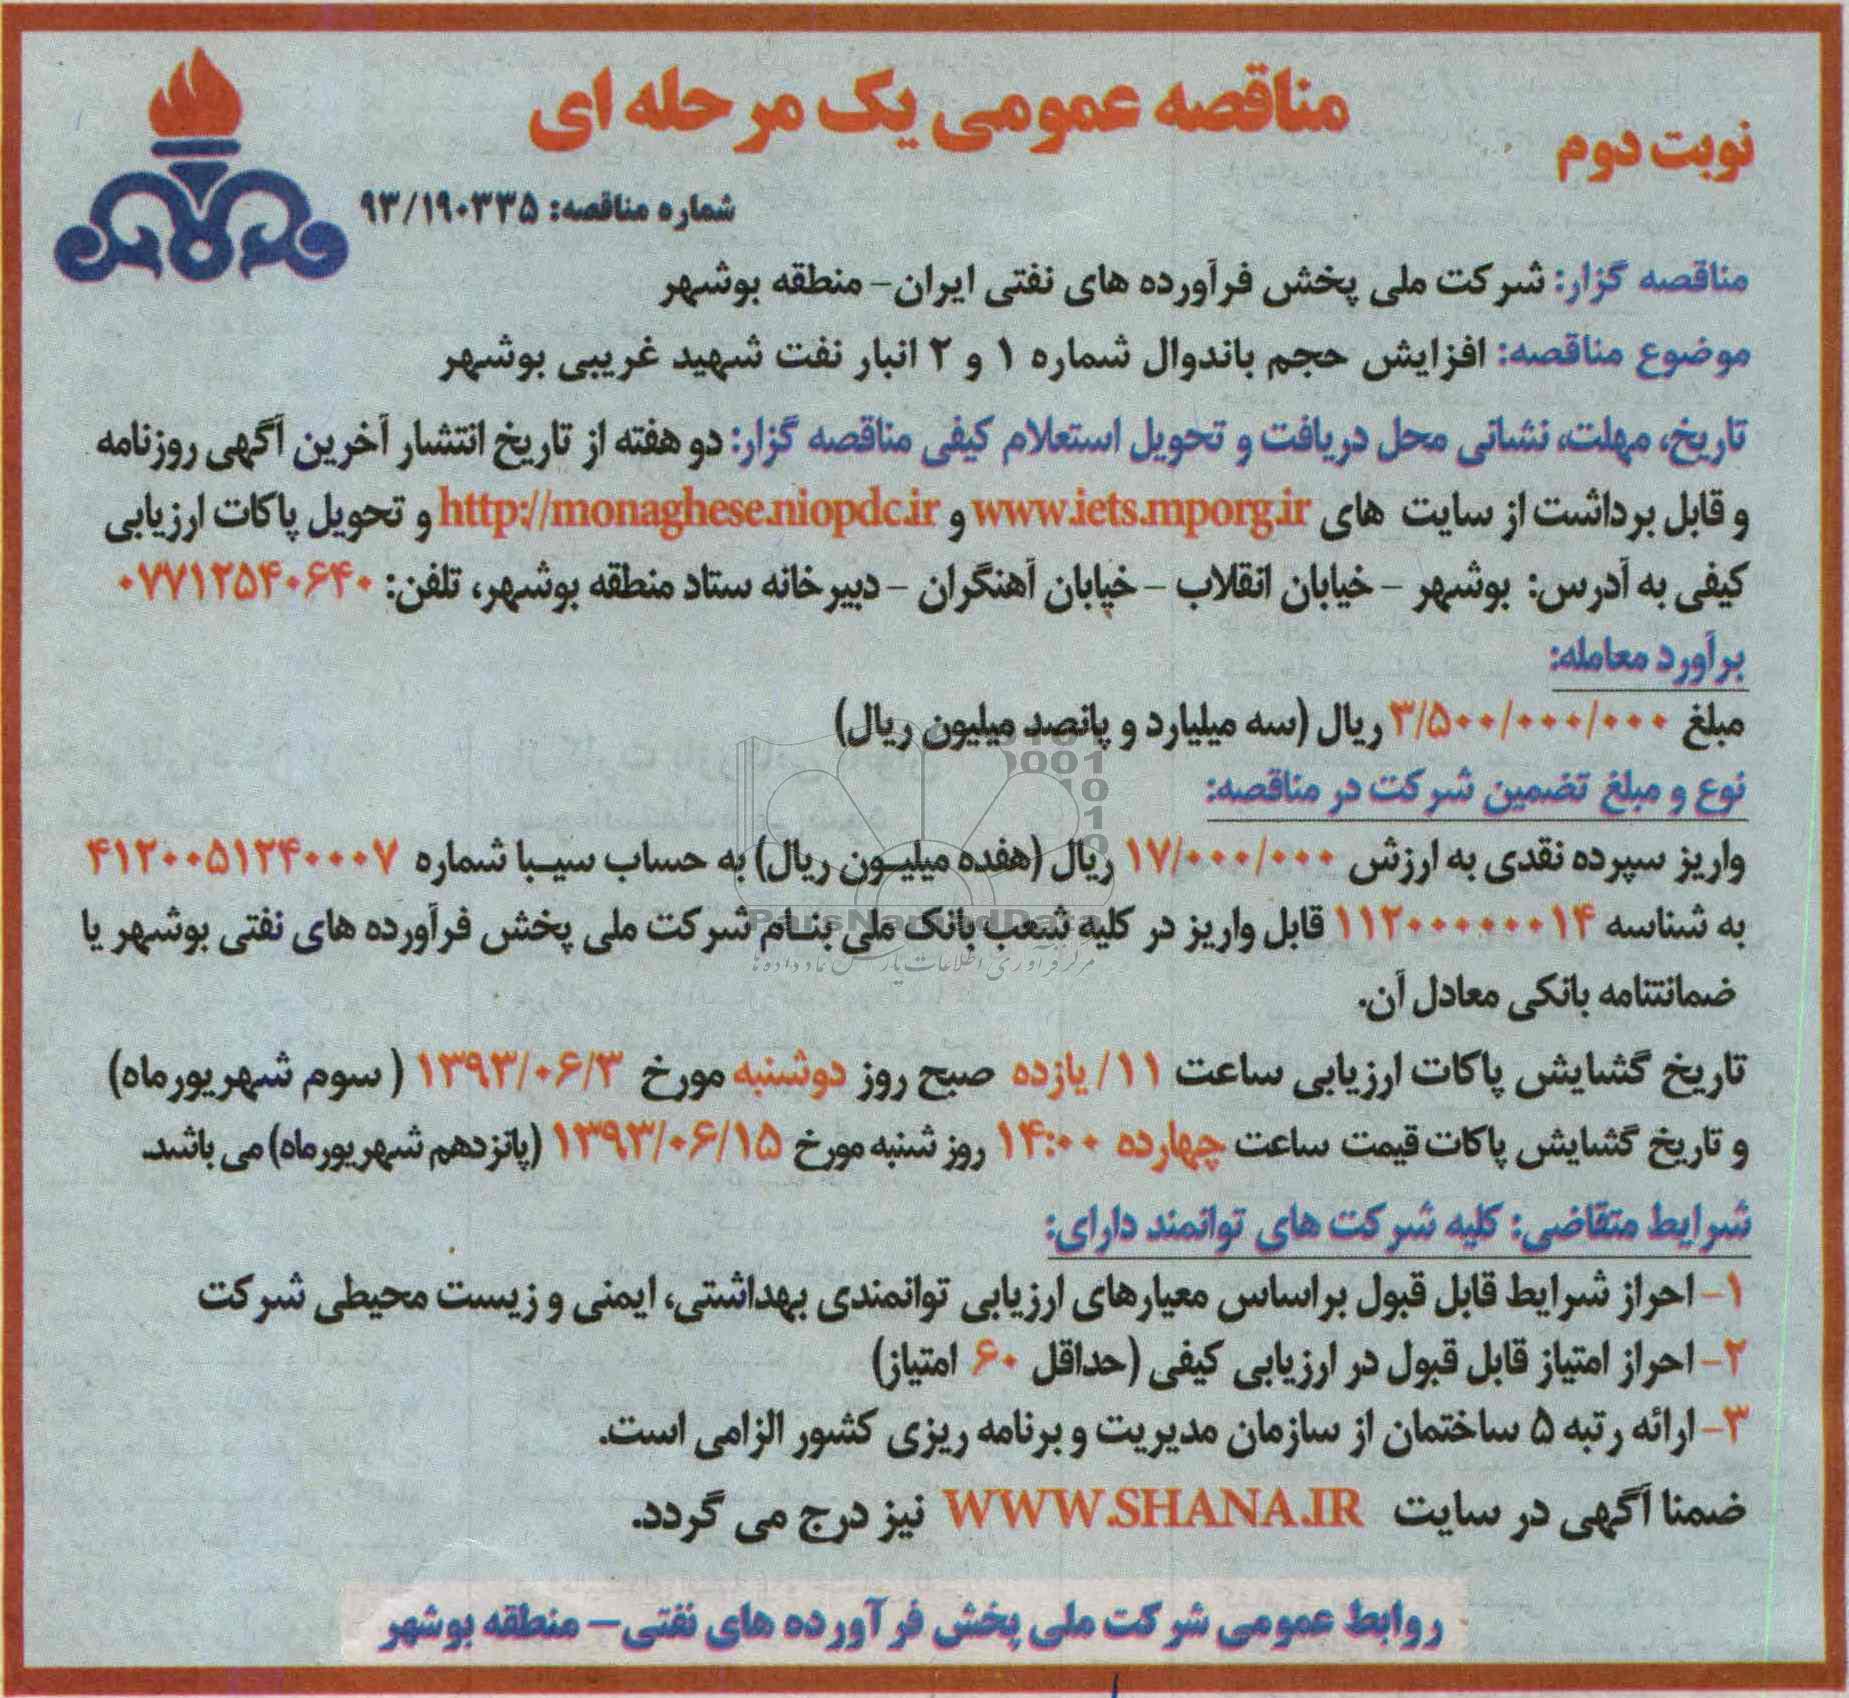 نوبت دوم
مناقصه عمومی یک مرحله ای
شماره مناقصه: ۹۳/۱۹۰۳۳۵
مناقصه گزار: شرکت ملی پخش فرآورده های نفتی ایران- منطقه بوشهر
موضوع مناقصه: افزایش حجم باندوال شماره ۱ و ۲ انبار نفت شهید غریبی بوشهر
تاریخ، مهلت، نشانی محل دریافت و تحویل استعلام کیفی مناقصه گزار: دو هفته از تاریخ انتشار آخرین آگهی روزنامه
و قابل برداشت از سایت های www.iets.mporg.ir و http://monaghese.niopdc.ir و تحویل پاکات ارزیابی
کیفی به آدرس: بوشهر – خیابان انقلاب – خیابان آهنگران – دبیرخانه ستاد منطقه بوشهر، تلفن: ۰۷۷۱۲۵۴۰۶۴۰
برآورد معامله:
مبلغ ۳/۵۰۰/۰۰۰/۰۰۰ ریال (سه میلیارد و پانصد میلیون ریال)
نوع و مبلغ تضمین شرکت در مناقصه:
واریز سپرده نقدی به ارزش ۱۷/۰۰۰/۰۰۰ ریال (هفده میلیون ریال) به حساب سیبا شماره ۴۱۲۰۰۵۱۲۴۰۰۰۷
به شناسه ۱۱۲۰۰۰۰۰۰۱۴ قابل واریز در کلیه شعب بانک ملی بنام شرکت ملی پخش فرآورده های نفتی بوشهر یا
ضمانتنامه بانکی معادل آن.
تاریخ گشایش پاکات ارزیابی ساعت ۱۱/ یازده صبح روز دوشنبه مورخ ۱۳۹۳/۰۶/۳ ( سوم شهریورماه)
و تاریخ گشایش پاکات قیمت ساعت چهارده ۱۴:۰۰ روز شنبه مورخ ۱۳۹۳/۰۶/۱۵ (پانزدهم شهریورماه) می باشد.
شرایط متقاضی: کلیه شرکت های توانمند دارای:
۱- احراز شرایط قابل قبول براساس معیارهای ارزیابی توانمندی بهداشتی، ایمنی و زیست محیطی شرکت
۲- احراز امتیاز قابل قبول در ارزیابی کیفی (حداقل ۶۰ امتیاز)
۳- ارائه رتبه ۵ ساختمان از سازمان مدیریت و برنامه ریزی کشور الزامی است.
ضمنا آگهی در سایت WWW.SHANA.IR نیز درج می گردد.
روابط عمومی شرکت ملی پخش فرآورده های نفتی– منطقه بوشهر
ParsNamadData
مرکز فرآوری اطلاعات پارس نماد داده ها